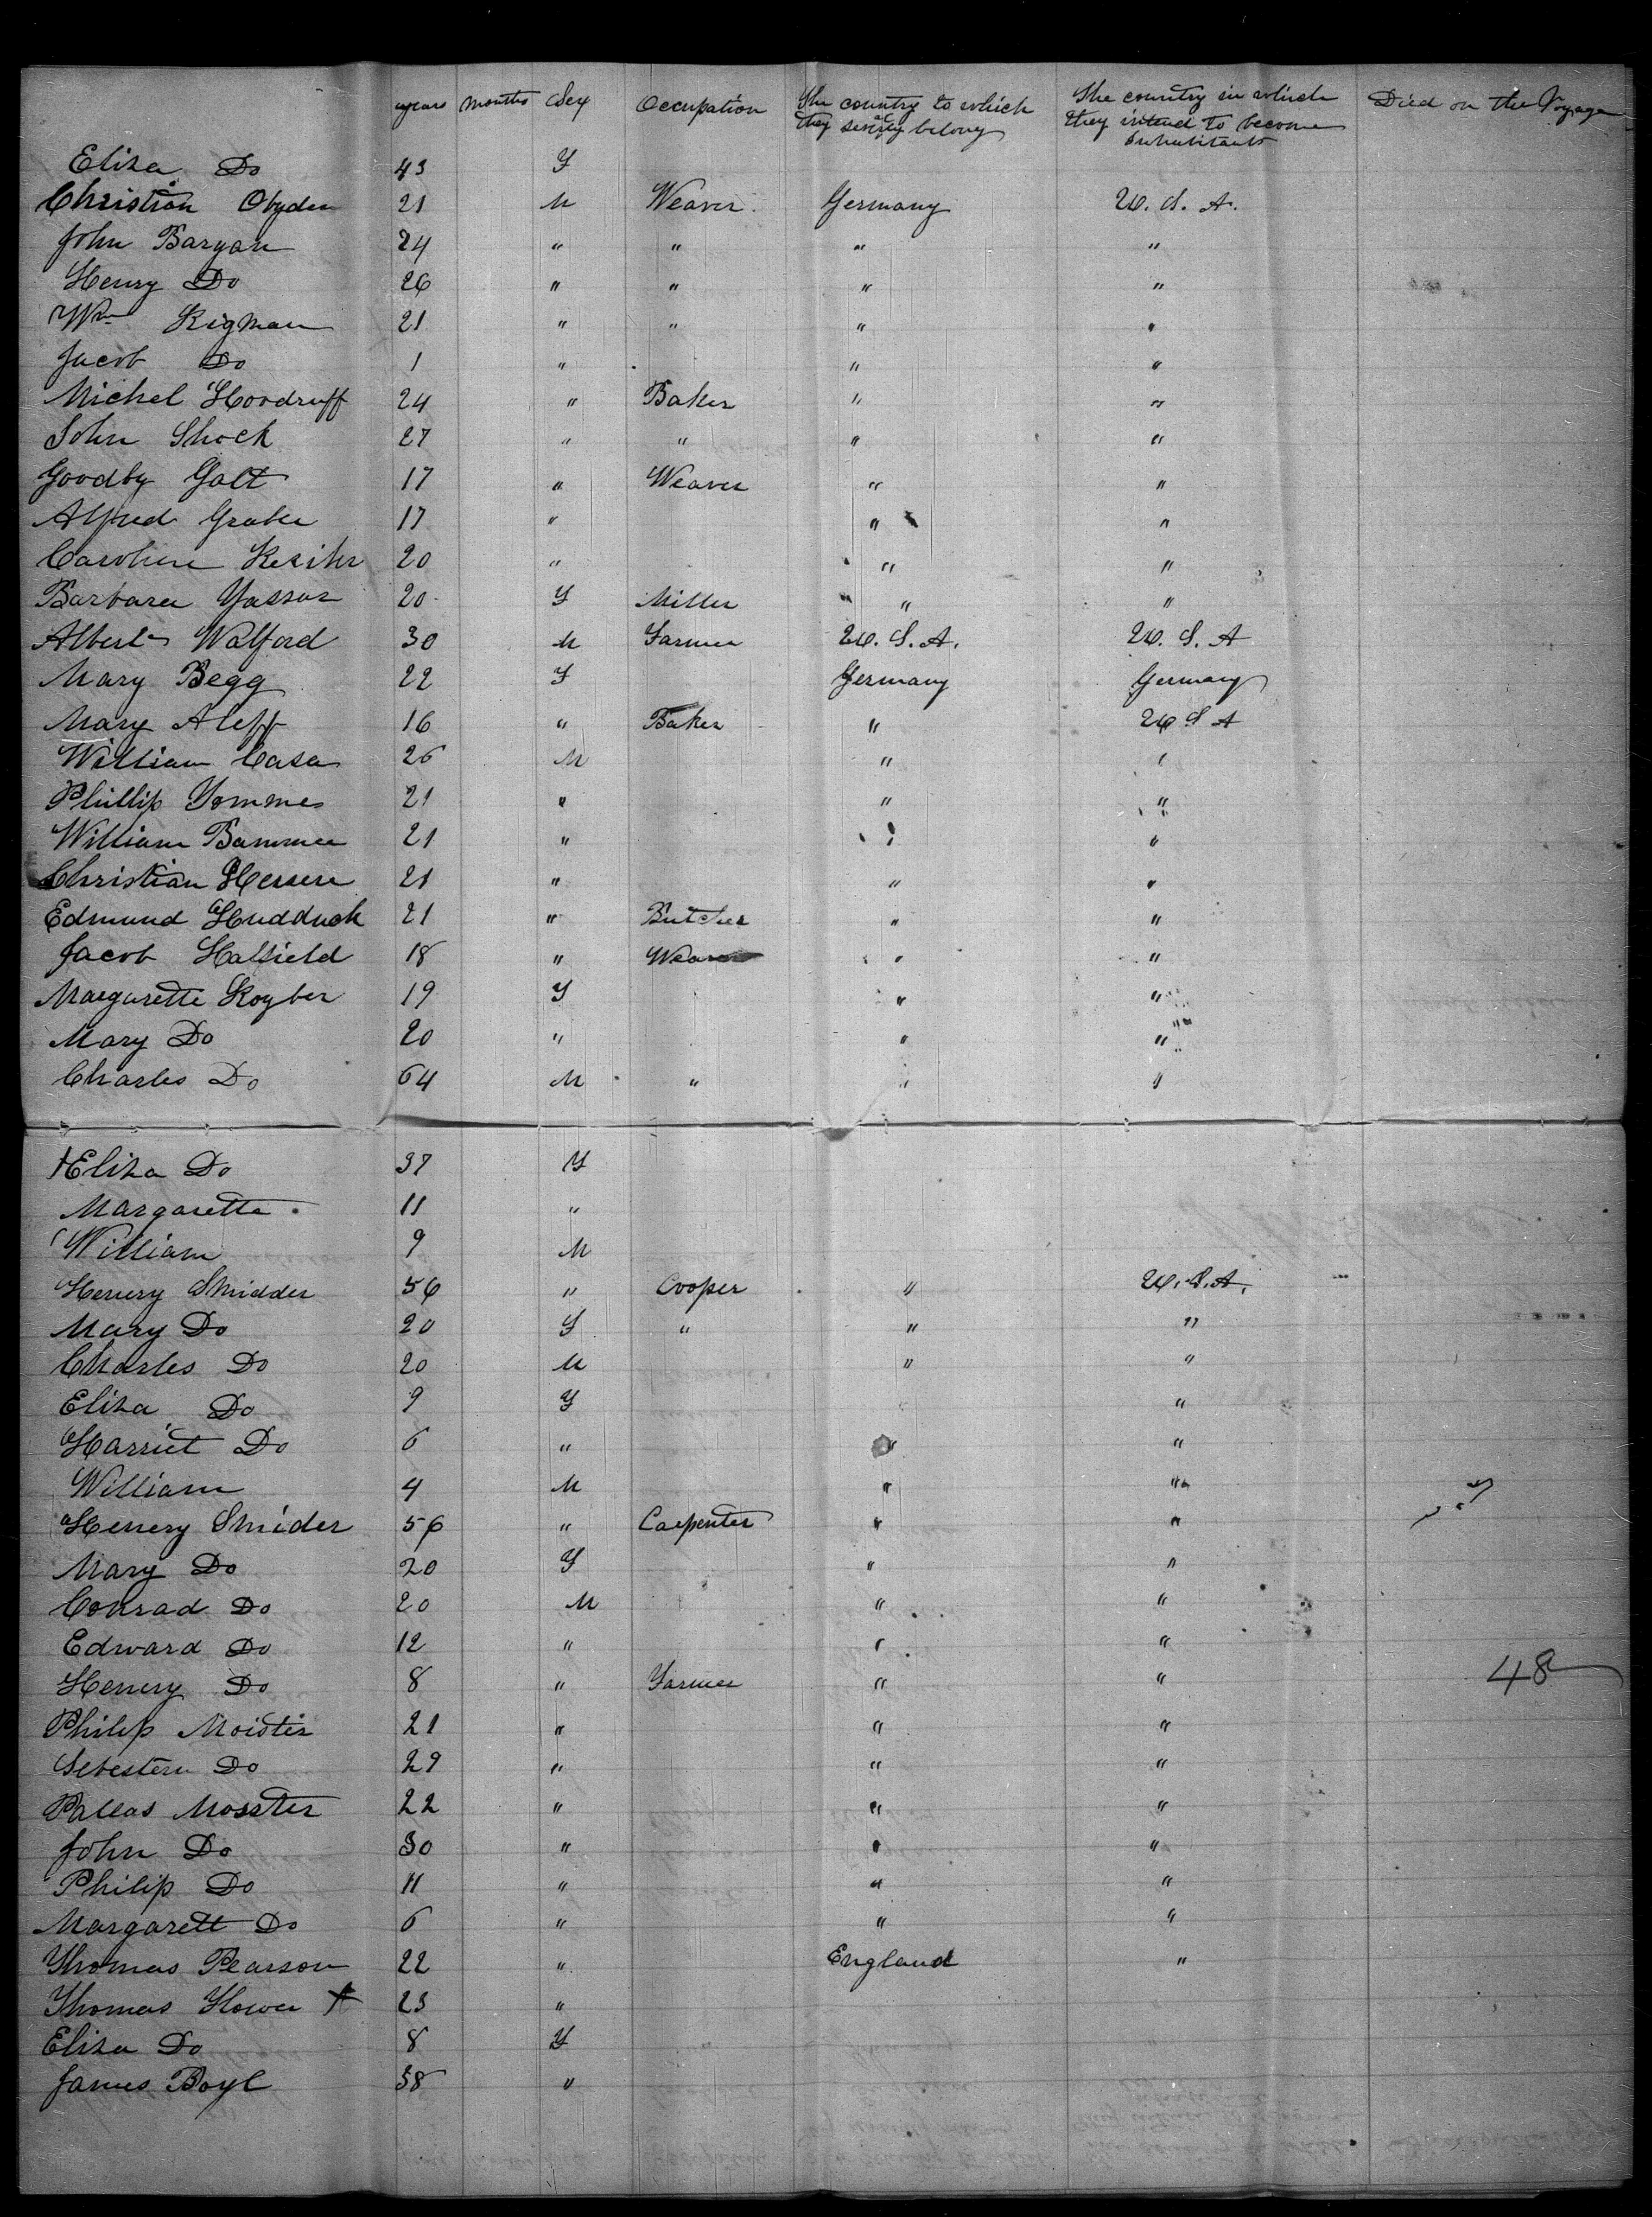 years months Sex Occupation The country to which they severally belong The country in which they intend to become inhabitants Died on the Voyage
Eliza Do 43 F
Christian Ogden 21 M Weaver Germany U.S.A.
John Bargan 24 " " " "
Henry Do 26 " " " "
Wm Kigman 21 " " " "
Jacob Do 1 " " "
Michel Hoodruff 24 " Baker " "
John Shock 27 " " " "
Goodby Galt 17 " Weaver " "
Alfred Grabe 17 " " "
Caroline 20 " " "
Barbara Yassor 20 F Miller " "
Albert Walford 30 M Farmer U.S.A. U.S.A
Mary Begg 22 F Germany Germany
Mary Aleff 16 " Baker " U S A
William Casa 26 M " "
Phillip Yommes 21 " " "
William Bammer 21 " " "
Christian Hessen 21 " " "
Edmund Hudduck 21 " Butcher " "
Jacob Halfield 18 " Weaver " "
Margarette Koyber 19 F " "
Mary Do 20 " " "
Charles Do 64 M " " "
Eliza Do 37 F
Margarette 11 "
William 9 M
Henery Shidder 56 " Cooper " U.S.A.
Mary Do 20 F " " "
Charles Do 20 M " "
Eliza Do 9 F "
Harriet Do 6 " " "
William 4 M " "
Henery Shider 56 " Carpenter " "
Mary Do 20 F " "
Conrad Do 20 M " "
Edward Do 12 " " "
Henery Do 8 " Farmer " " 48
Philip Moister 21 " " "
Sebestern Do 29 " " "
Pallas Mosster 22 " " "
John Do 30 " " "
Philip Do 11 " " "
Margarett Do 6 " " "
Thomas Pearson 22 " England "
Thomas Flower 23 "
Eliza Do 8 F
James Boyl 38 "